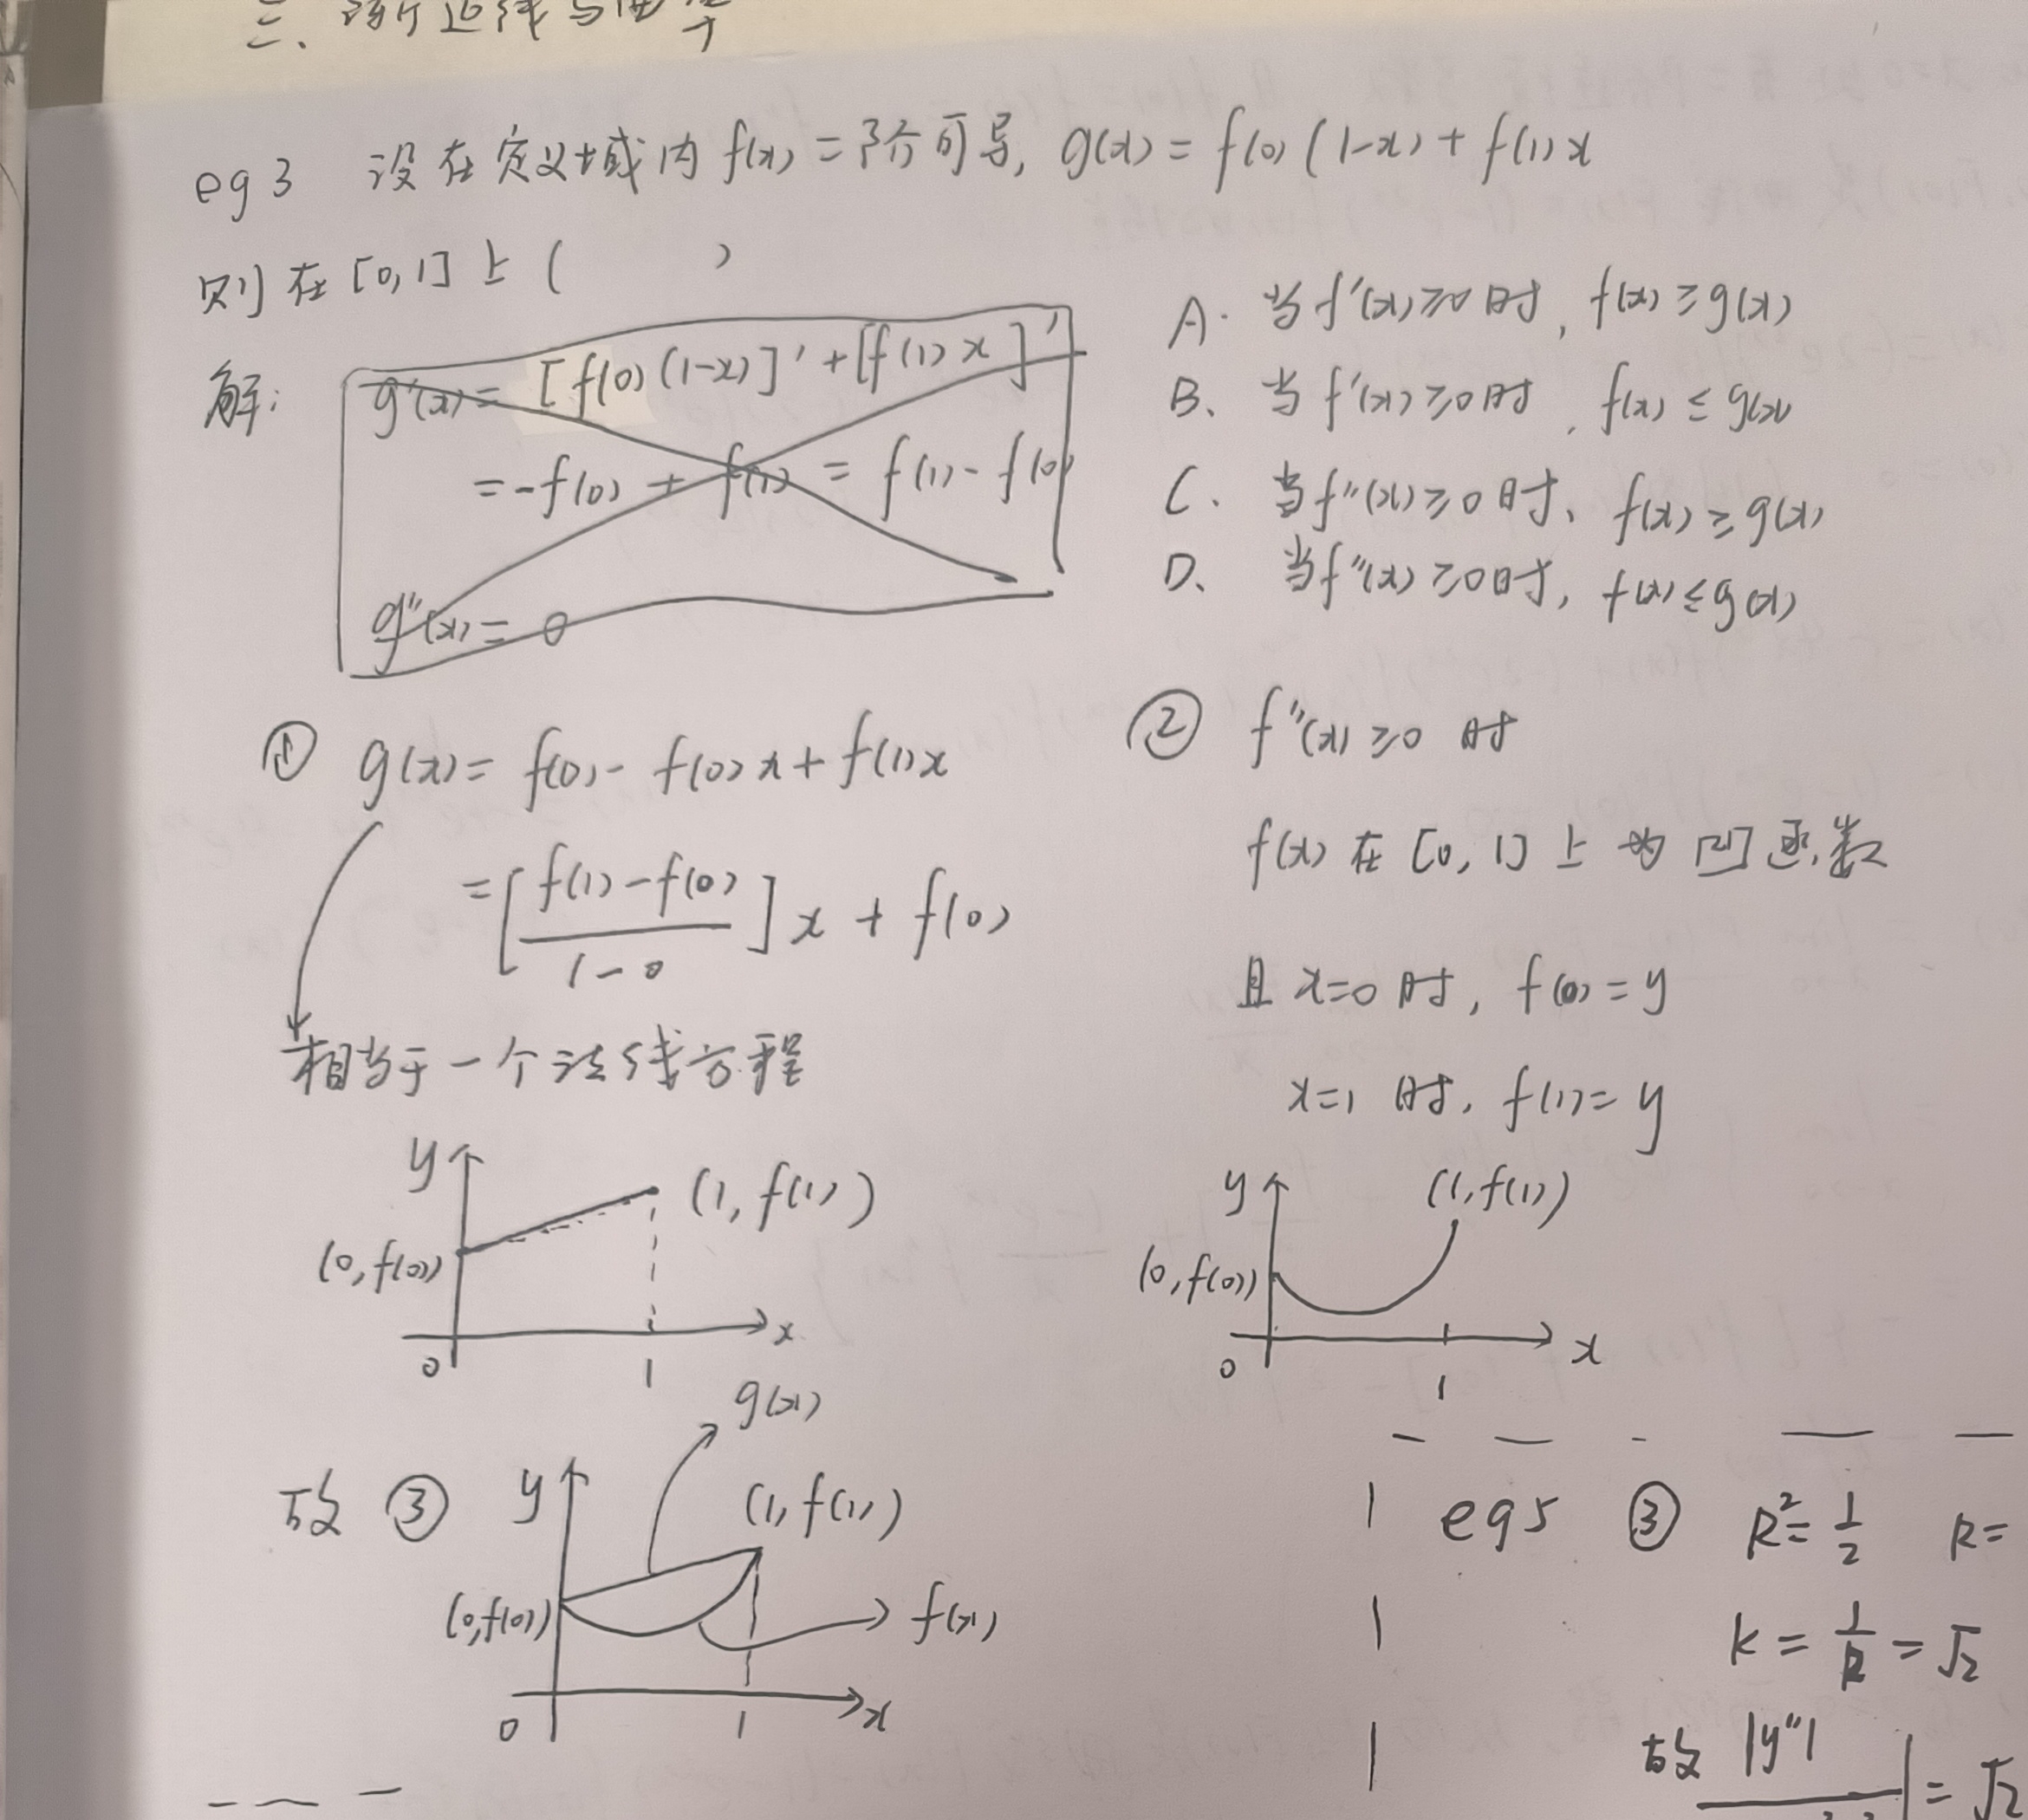 三、渐近线与曲率
eg 3 设在定义域内 f(x) 二阶可导, g(x) = f(0)(1-x) + f(1)x
则在 [0,1] 上 ( )
A. 当 f'(x) ≥0 时, f(x) ≥ g(x)
B. 当 f'(x) ≥0 时, f(x) ≤ g(x)
C. 当 f''(x) ≥0 时, f(x) ≥ g(x)
D. 当 f''(x) ≥0 时, f(x) ≤ g(x)
解: g'(x) = [f(0)(1-x)]' + [f(1)x]'
= -f(0) + f(1) = f(1) - f(0)
g''(x) = 0
① g(x) = f(0) - f(0)x + f(1)x
= [(f(1) - f(0))/(1-0)] x + f(0)
相当于一个法线方程
y
(1, f(1))
(0, f(0))
x
0
1
② f''(x) ≥0 时
f(x) 在 [0,1] 上为凹函数
且 x=0 时, f(0) = y
x=1 时, f(1) = y
y
(1, f(1))
(0, f(0))
x
0
1
故 ③
g(x)
y
(1, f(1))
(0, f(0))
f(x)
x
0
1
eg5 ③ R²= 1/2 R=
k = 1/R = √2
故 |y''|
= √2